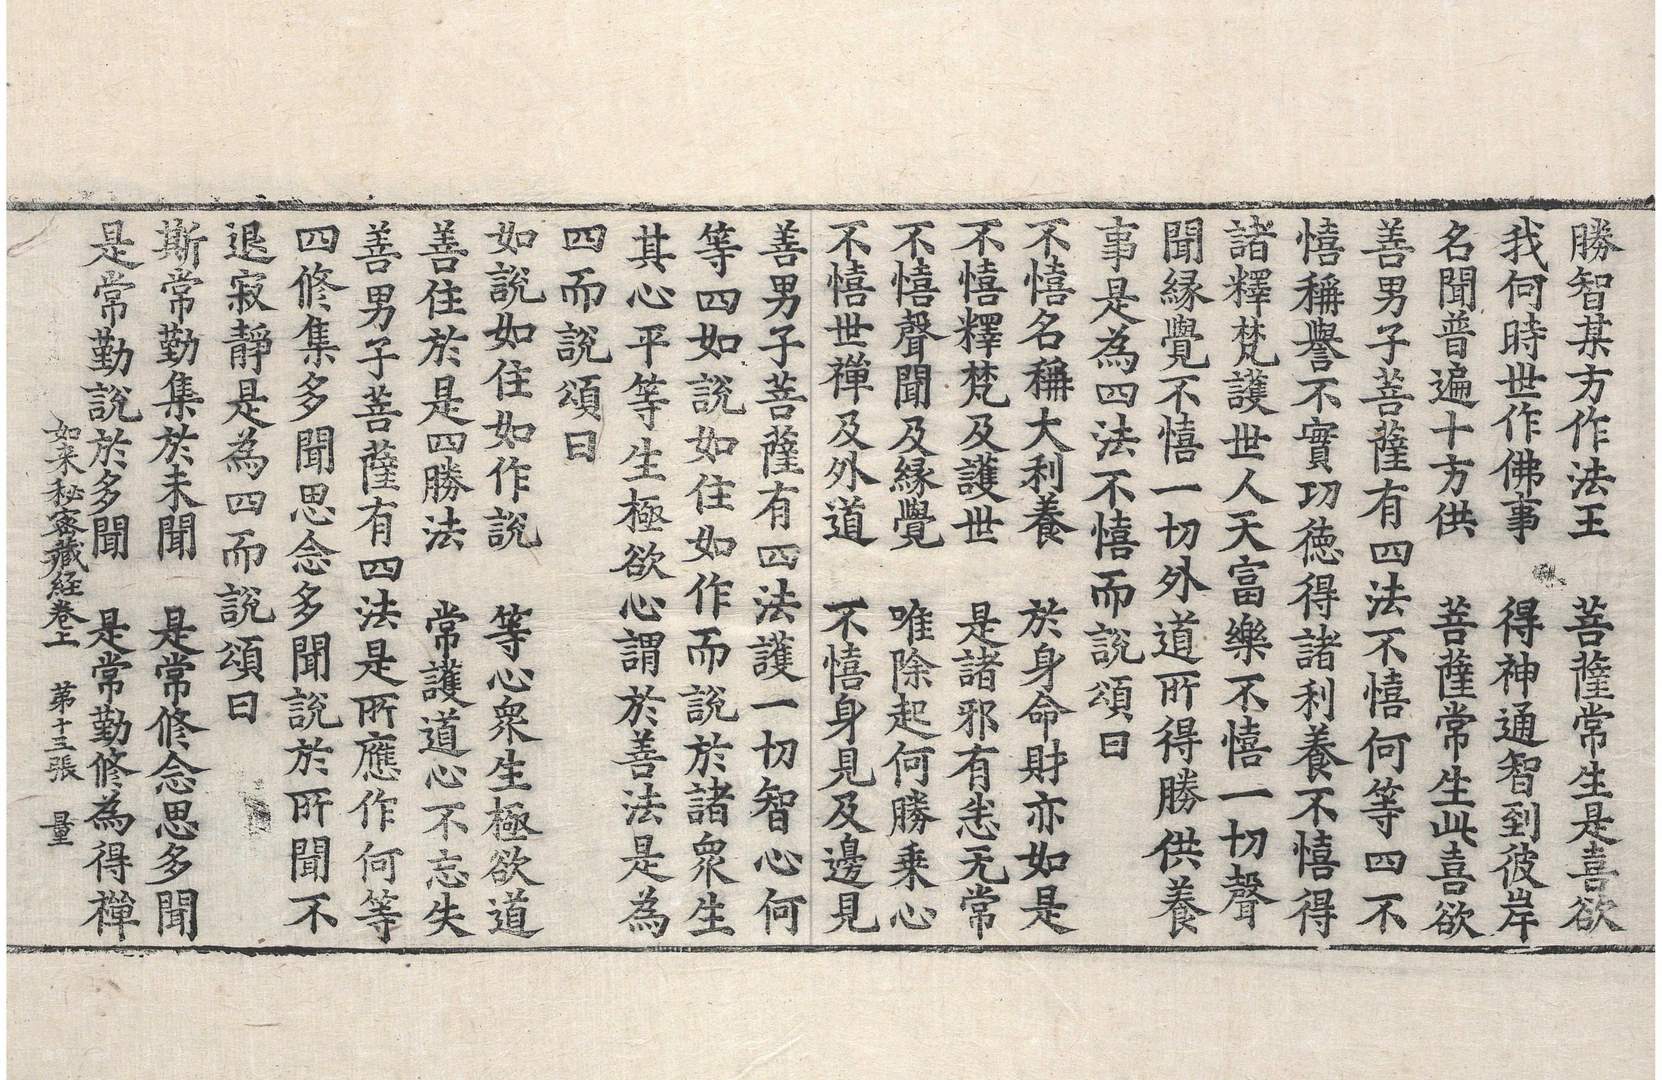 勝智某方作法王　菩薩常生是喜欲
我何時世作佛事　得神通智到彼岸
名聞普遍十方供　菩薩常生此喜欲
善男子菩薩有四法不憘何等四不
憘稱譽不實㓛徳得諸利養不憘得
諸釋梵護世人天富樂不憘一切聲
聞縁覺不憘一切外道所得勝供養
事是為四法不憘而說頌曰
不憘名稱大利養　於身命財亦如是
不憘釋梵及護世　是諸邪有恙无常
不憘聲聞及縁覺　唯除起何勝乗心
不憘世禅及外道　不憘身見及邊見
善男子菩薩有四法護一切智心何
等四如說如住如作而說於諸衆生
其心平等生極欲心謂於善法是為
四而說頌曰
如說如住如作說　等心衆生極欲道
善住於是四勝法　常護道心不忘失
善男子菩薩有四法是所應作何等
四修集多聞思念多聞說於所聞不
退寂靜是為四而說頌曰
斯常勤集於未聞　是常修念思多聞
是常勤說於多聞　是常勤修為得禅
如来秘密藏経卷上　第十三張　量